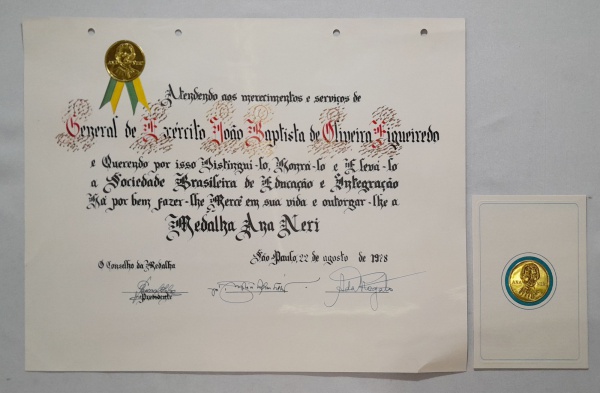 Atendendo aos merecimentos e serviços de
General de Exército João Baptista de Oliveira Figueiredo
e Querendo por isso Distingui-lo, Honrá-lo e Elevá-lo
a Sociedade Brasileira de Educação e Integração
Há por bem fazer-lhe Mercê em sua vida e outorgar-lhe a
Medalha Ana Neri
São Paulo, 22 de agosto de 1978
O Conselho da Medalha
Presidente